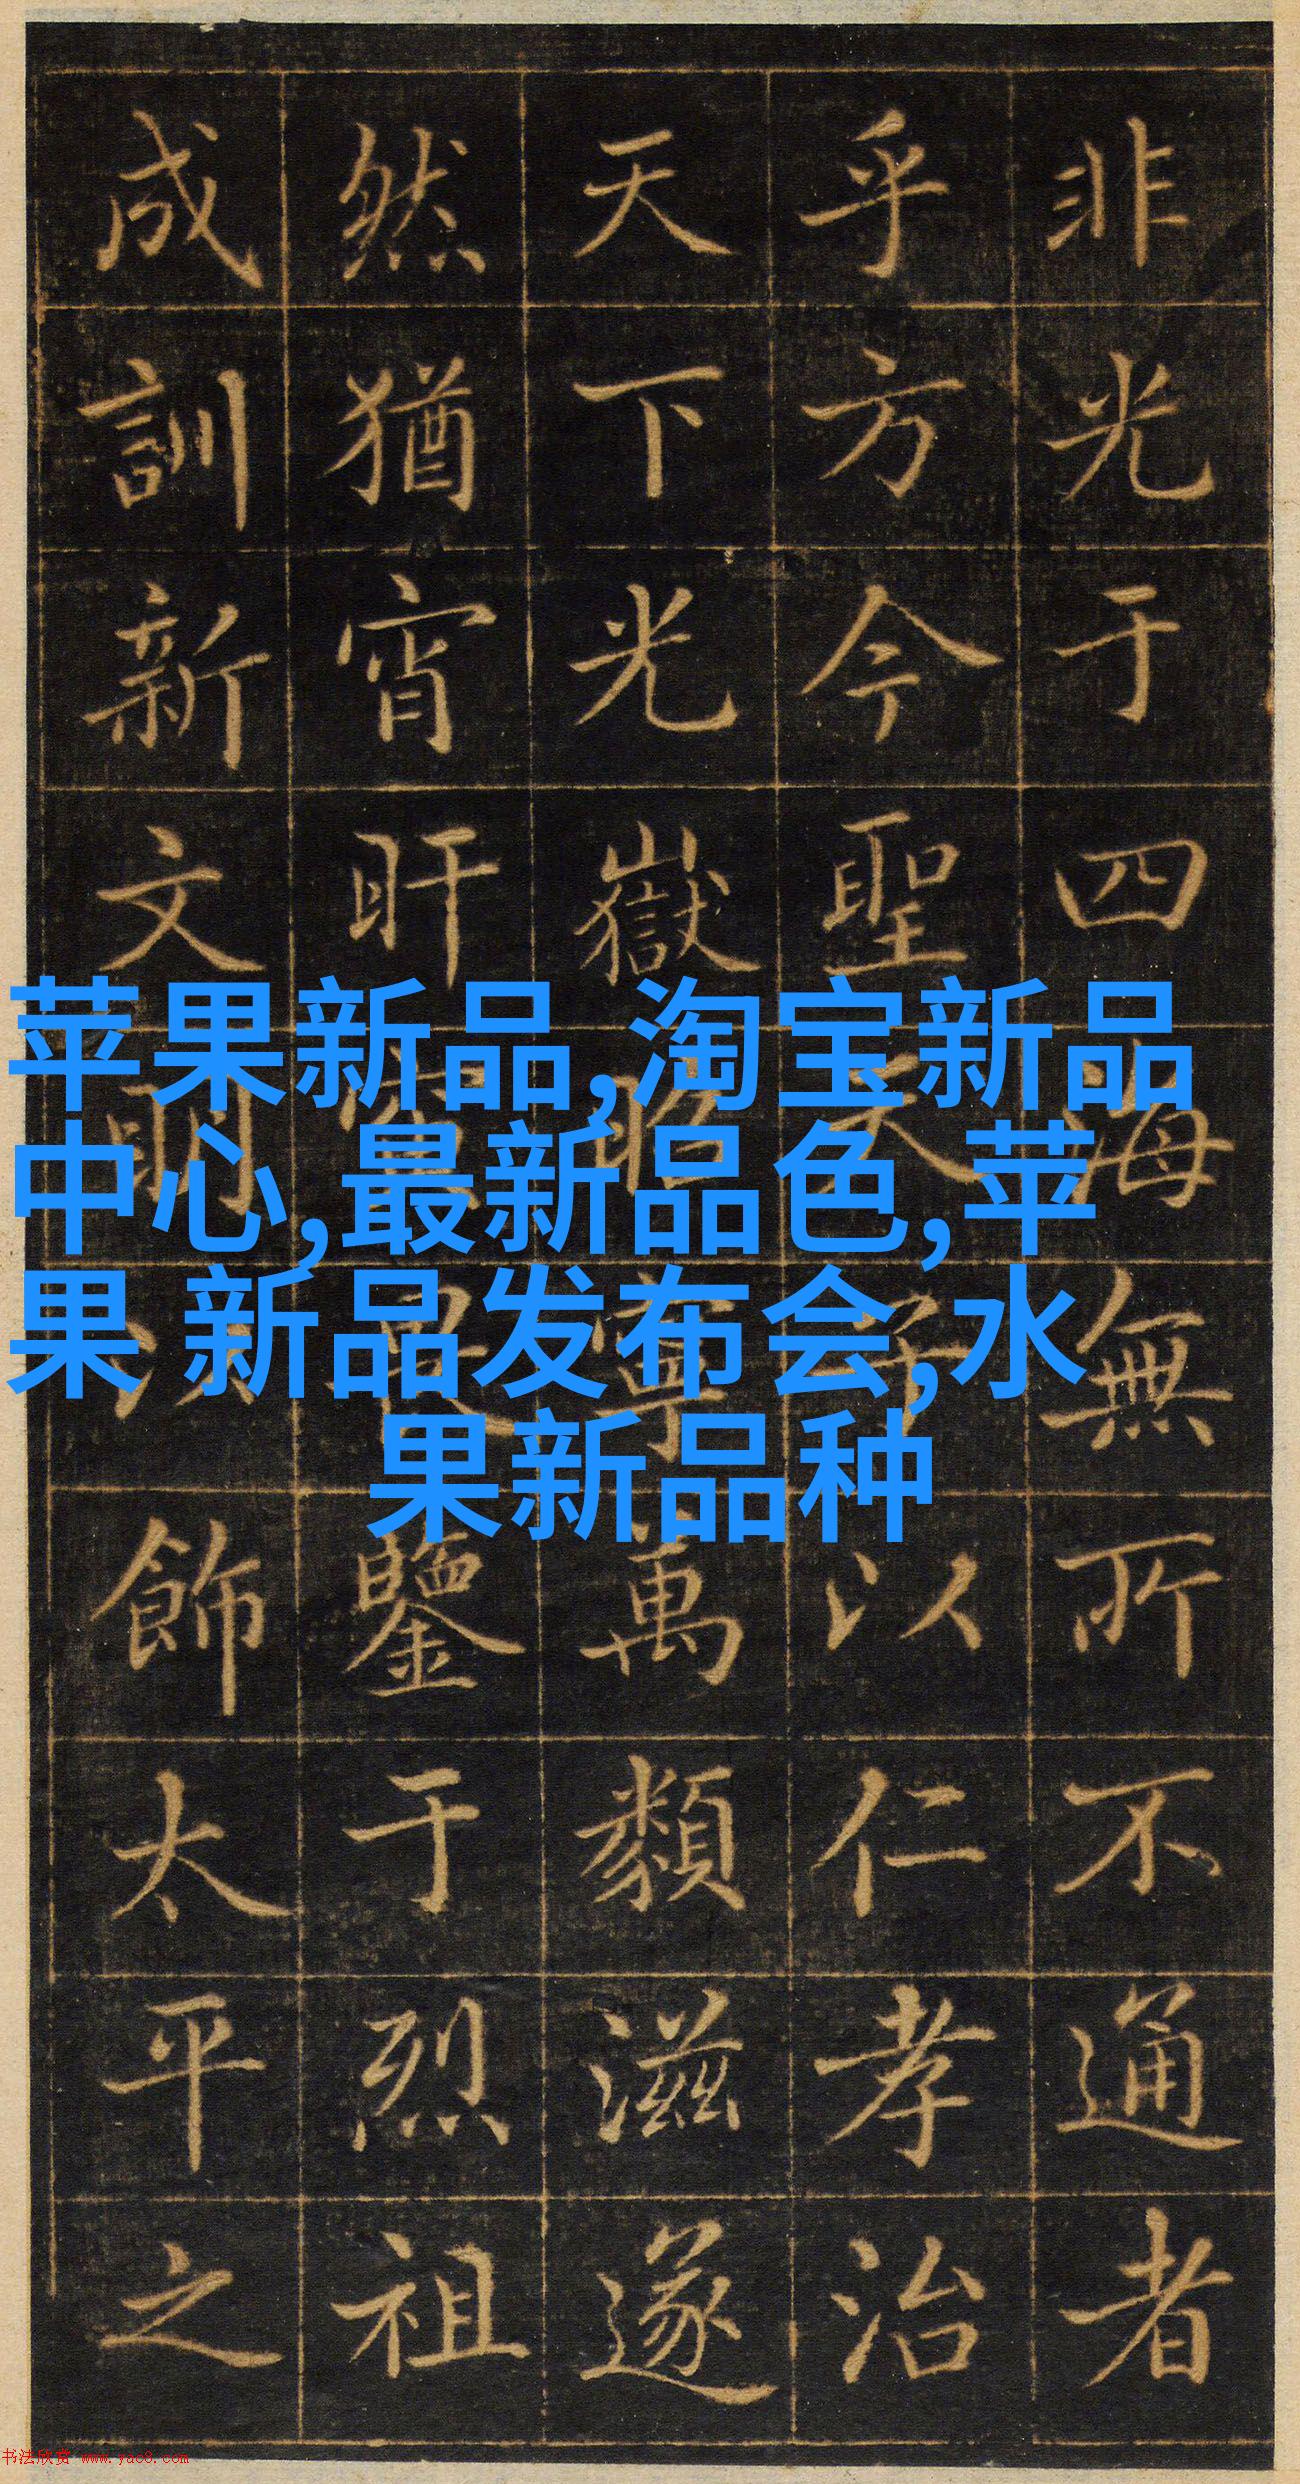 非光于四海無所不通者
乎方今聖天子以仁孝治
天下光嶽昭寧萬類滋遂
然猶宵旰鑒于烈祖
成訓新文明飾太平之
苹果新品,淘宝新品
中心,最新品色,苹
果 新品发布会,水
果新品种
书法欣赏 www.yac8.com